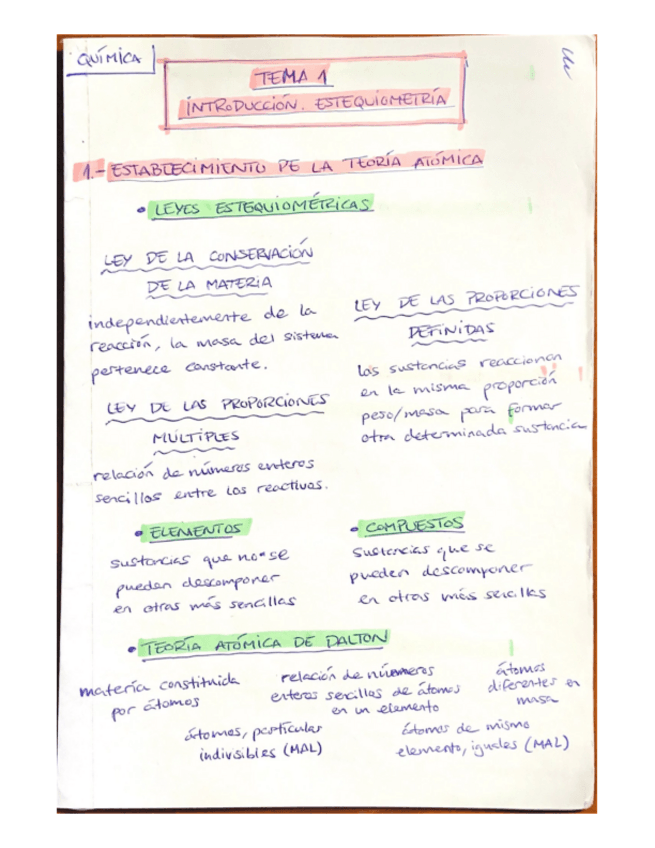 QUÍMICA
TEMA 1
INTRODUCCIÓN. ESTEQUIOMETRÍA
1.- ESTABLECIMIENTO DE LA TEORÍA ATÓMICA
• LEYES ESTEQUIOMÉTRICAS
LEY DE LA CONSERVACIÓN
DE LA MATERIA
independientemente de la
reacción, la masa del sistema
pertenece constante.
LEY DE LAS PROPORCIONES
MÚLTIPLES
relación de números enteros
sencillos entre los reactivos.
LEY DE LAS PROPORCIONES
DEFINIDAS
las sustancias reaccionan
en la misma proporción
peso/masa para formar
otra determinada sustancia
• ELEMENTOS
sustancias que no se
pueden descomponer
en otras más sencillas
• COMPUESTOS
sustancias que se
pueden descomponer
en otras más sencillas
• TEORÍA ATÓMICA DE DALTON
materia constituida
por átomos
relación de números
enteros sencillos de átomos
en un elemento
átomos
diferentes en
masa
átomos, particular
indivisibles (MAL)
átomos de mismo
elemento, iguales (MAL)